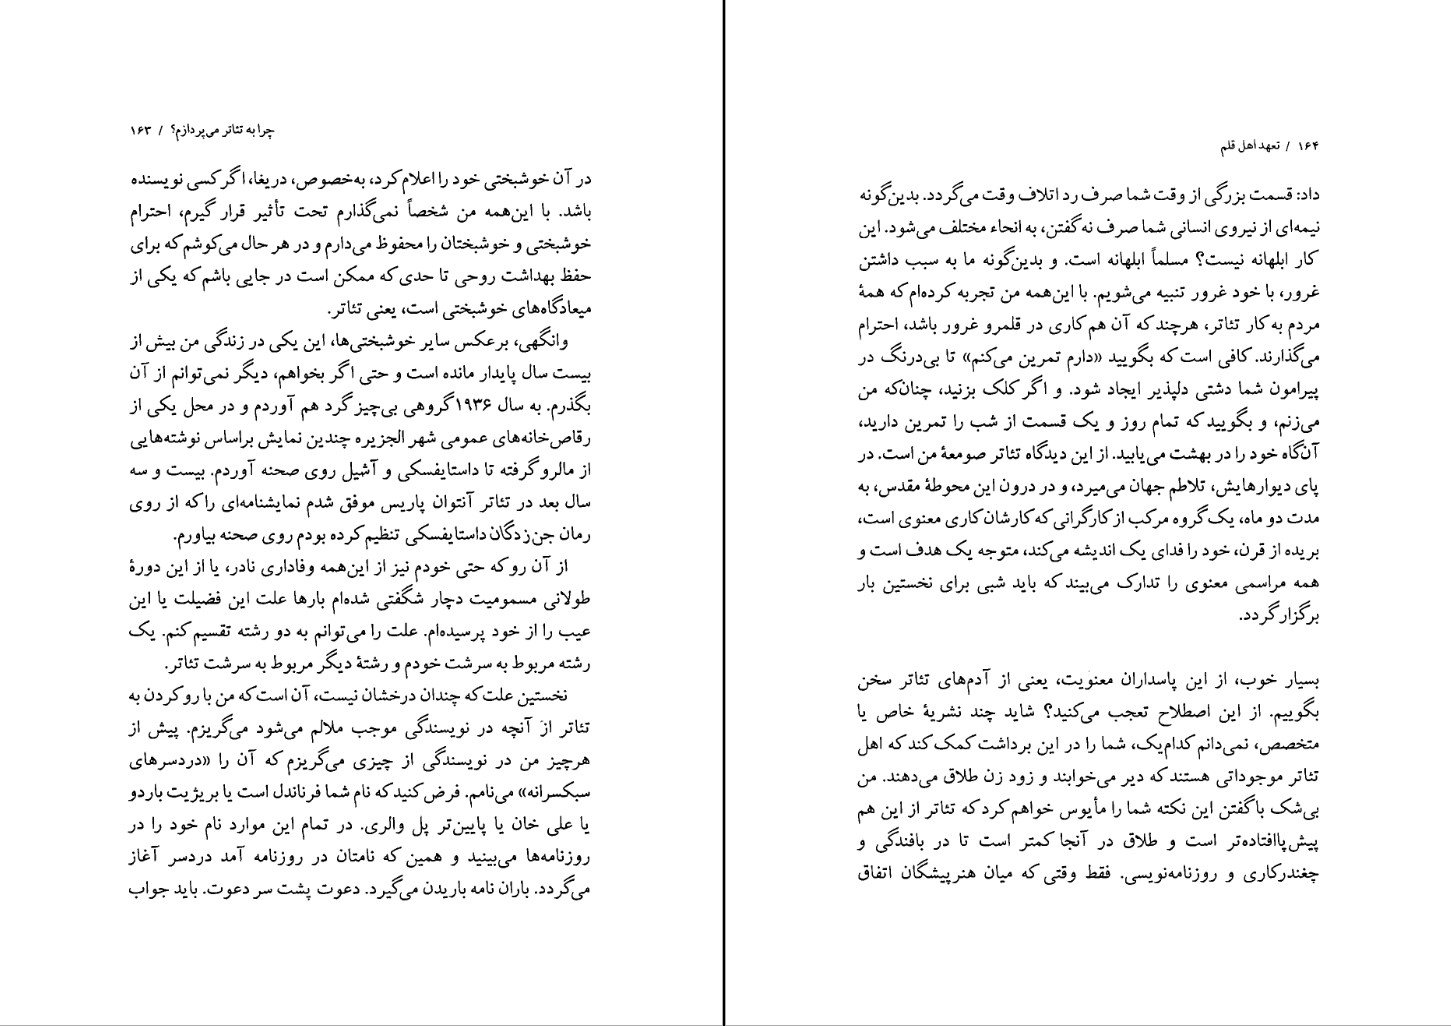 چرا به تئاتر می‌پردازم؟ / ۱۶۳
در آن خوشبختی خود را اعلام کرد، به‌خصوص، دریغا، اگر کسی نویسنده
باشد. با این‌همه من شخصاً نمی‌گذارم تحت تأثیر قرار گیرم، احترام
خوشبختی و خوشبختان را محفوظ می‌دارم و در هر حال می‌کوشم که برای
حفظ بهداشت روحی تا حدی که ممکن است در جایی باشم که یکی از
میعادگاه‌های خوشبختی است، یعنی تئاتر.
وانگهی، برعکس سایر خوشبختی‌ها، این یکی در زندگی من بیش از
بیست سال پایدار مانده است و حتی اگر بخواهم، دیگر نمی‌توانم از آن
بگذرم. به سال ۱۹۳۶ گروهی بی‌چیز گرد هم آوردم و در محل یکی از
رقاص‌خانه‌های عمومی شهر الجزیره چندین نمایش براساس نوشته‌هایی
از مالرو گرفته تا داستایفسکی و آشیل روی صحنه آوردم. بیست و سه
سال بعد در تئاتر آنتوان پاریس موفق شدم نمایشنامه‌ای را که از روی
رمان جن‌زدگان داستایفسکی تنظیم کرده بودم روی صحنه بیاورم.
از آن رو که حتی خودم نیز از این‌همه وفاداری نادر، یا از این دورهٔ
طولانی مسمومیت دچار شگفتی شده‌ام بارها علت این فضیلت یا این
عیب را از خود پرسیده‌ام. علت را می‌توانم به دو رشته تقسیم کنم. یک
رشته مربوط به سرشت خودم و رشتهٔ دیگر مربوط به سرشت تئاتر.
نخستین علت که چندان درخشان نیست، آن است که من با رو کردن به
تئاتر از آنچه در نویسندگی موجب ملالم می‌شود می‌گریزم. پیش از
هرچیز من در نویسندگی از چیزی می‌گریزم که آن را «دردسرهای
سبکسرانه» می‌نامم. فرض کنید که نام شما فرناندل است یا بریژیت باردو
یا علی خان یا پایین‌تر پل والری. در تمام این موارد نام خود را در
روزنامه‌ها می‌بینید و همین که نامتان در روزنامه آمد دردسر آغاز
می‌گردد. باران نامه باریدن می‌گیرد. دعوت پشت سر دعوت. باید جواب
۱۶۴ / تعهد اهل قلم
داد: قسمت بزرگی از وقت شما صرف رد اتلاف وقت می‌گردد. بدین‌گونه
نیمه‌ای از نیروی انسانی شما صرف نه گفتن، به انحاء مختلف می‌شود. این
کار ابلهانه نیست؟ مسلماً ابلهانه است. و بدین‌گونه ما به سبب داشتن
غرور، با خود غرور تنبیه می‌شویم. با این‌همه من تجربه کرده‌ام که همهٔ
مردم به کار تئاتر، هرچند که آن هم کاری در قلمرو غرور باشد، احترام
می‌گذارند. کافی است که بگویید «دارم تمرین می‌کنم» تا بی‌درنگ در
پیرامون شما دشتی دلپذیر ایجاد شود. و اگر کلک بزنید، چنان‌که من
می‌زنم، و بگویید که تمام روز و یک قسمت از شب را تمرین دارید،
آن‌گاه خود را در بهشت می‌یابید. از این دیدگاه تئاتر صومعهٔ من است. در
پای دیوارهایش، تلاطم جهان می‌میرد، و در درون این محوطهٔ مقدس، به
مدت دو ماه، یک گروه مرکب از کارگرانی که کارشان کاری معنوی است،
بریده از قرن، خود را فدای یک اندیشه می‌کند، متوجه یک هدف است و
همه مراسمی معنوی را تدارک می‌بیند که باید شبی برای نخستین بار
برگزار گردد.
بسیار خوب، از این پاسداران معنویت، یعنی از آدم‌های تئاتر سخن
بگوییم. از این اصطلاح تعجب می‌کنید؟ شاید چند نشریهٔ خاص یا
متخصص، نمی‌دانم کدام‌یک، شما را در این برداشت کمک کند که اهل
تئاتر موجوداتی هستند که دیر می‌خوابند و زود زن طلاق می‌دهند. من
بی‌شک با گفتن این نکته شما را مأیوس خواهم کرد که تئاتر از این هم
پیش‌پاافتاده‌تر است و طلاق در آنجا کمتر است تا در بافندگی و
چغندرکاری و روزنامه‌نویسی. فقط وقتی که میان هنرپیشگان اتفاق